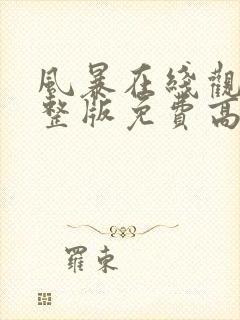 風暴在綫觀
整版免費高
羅東